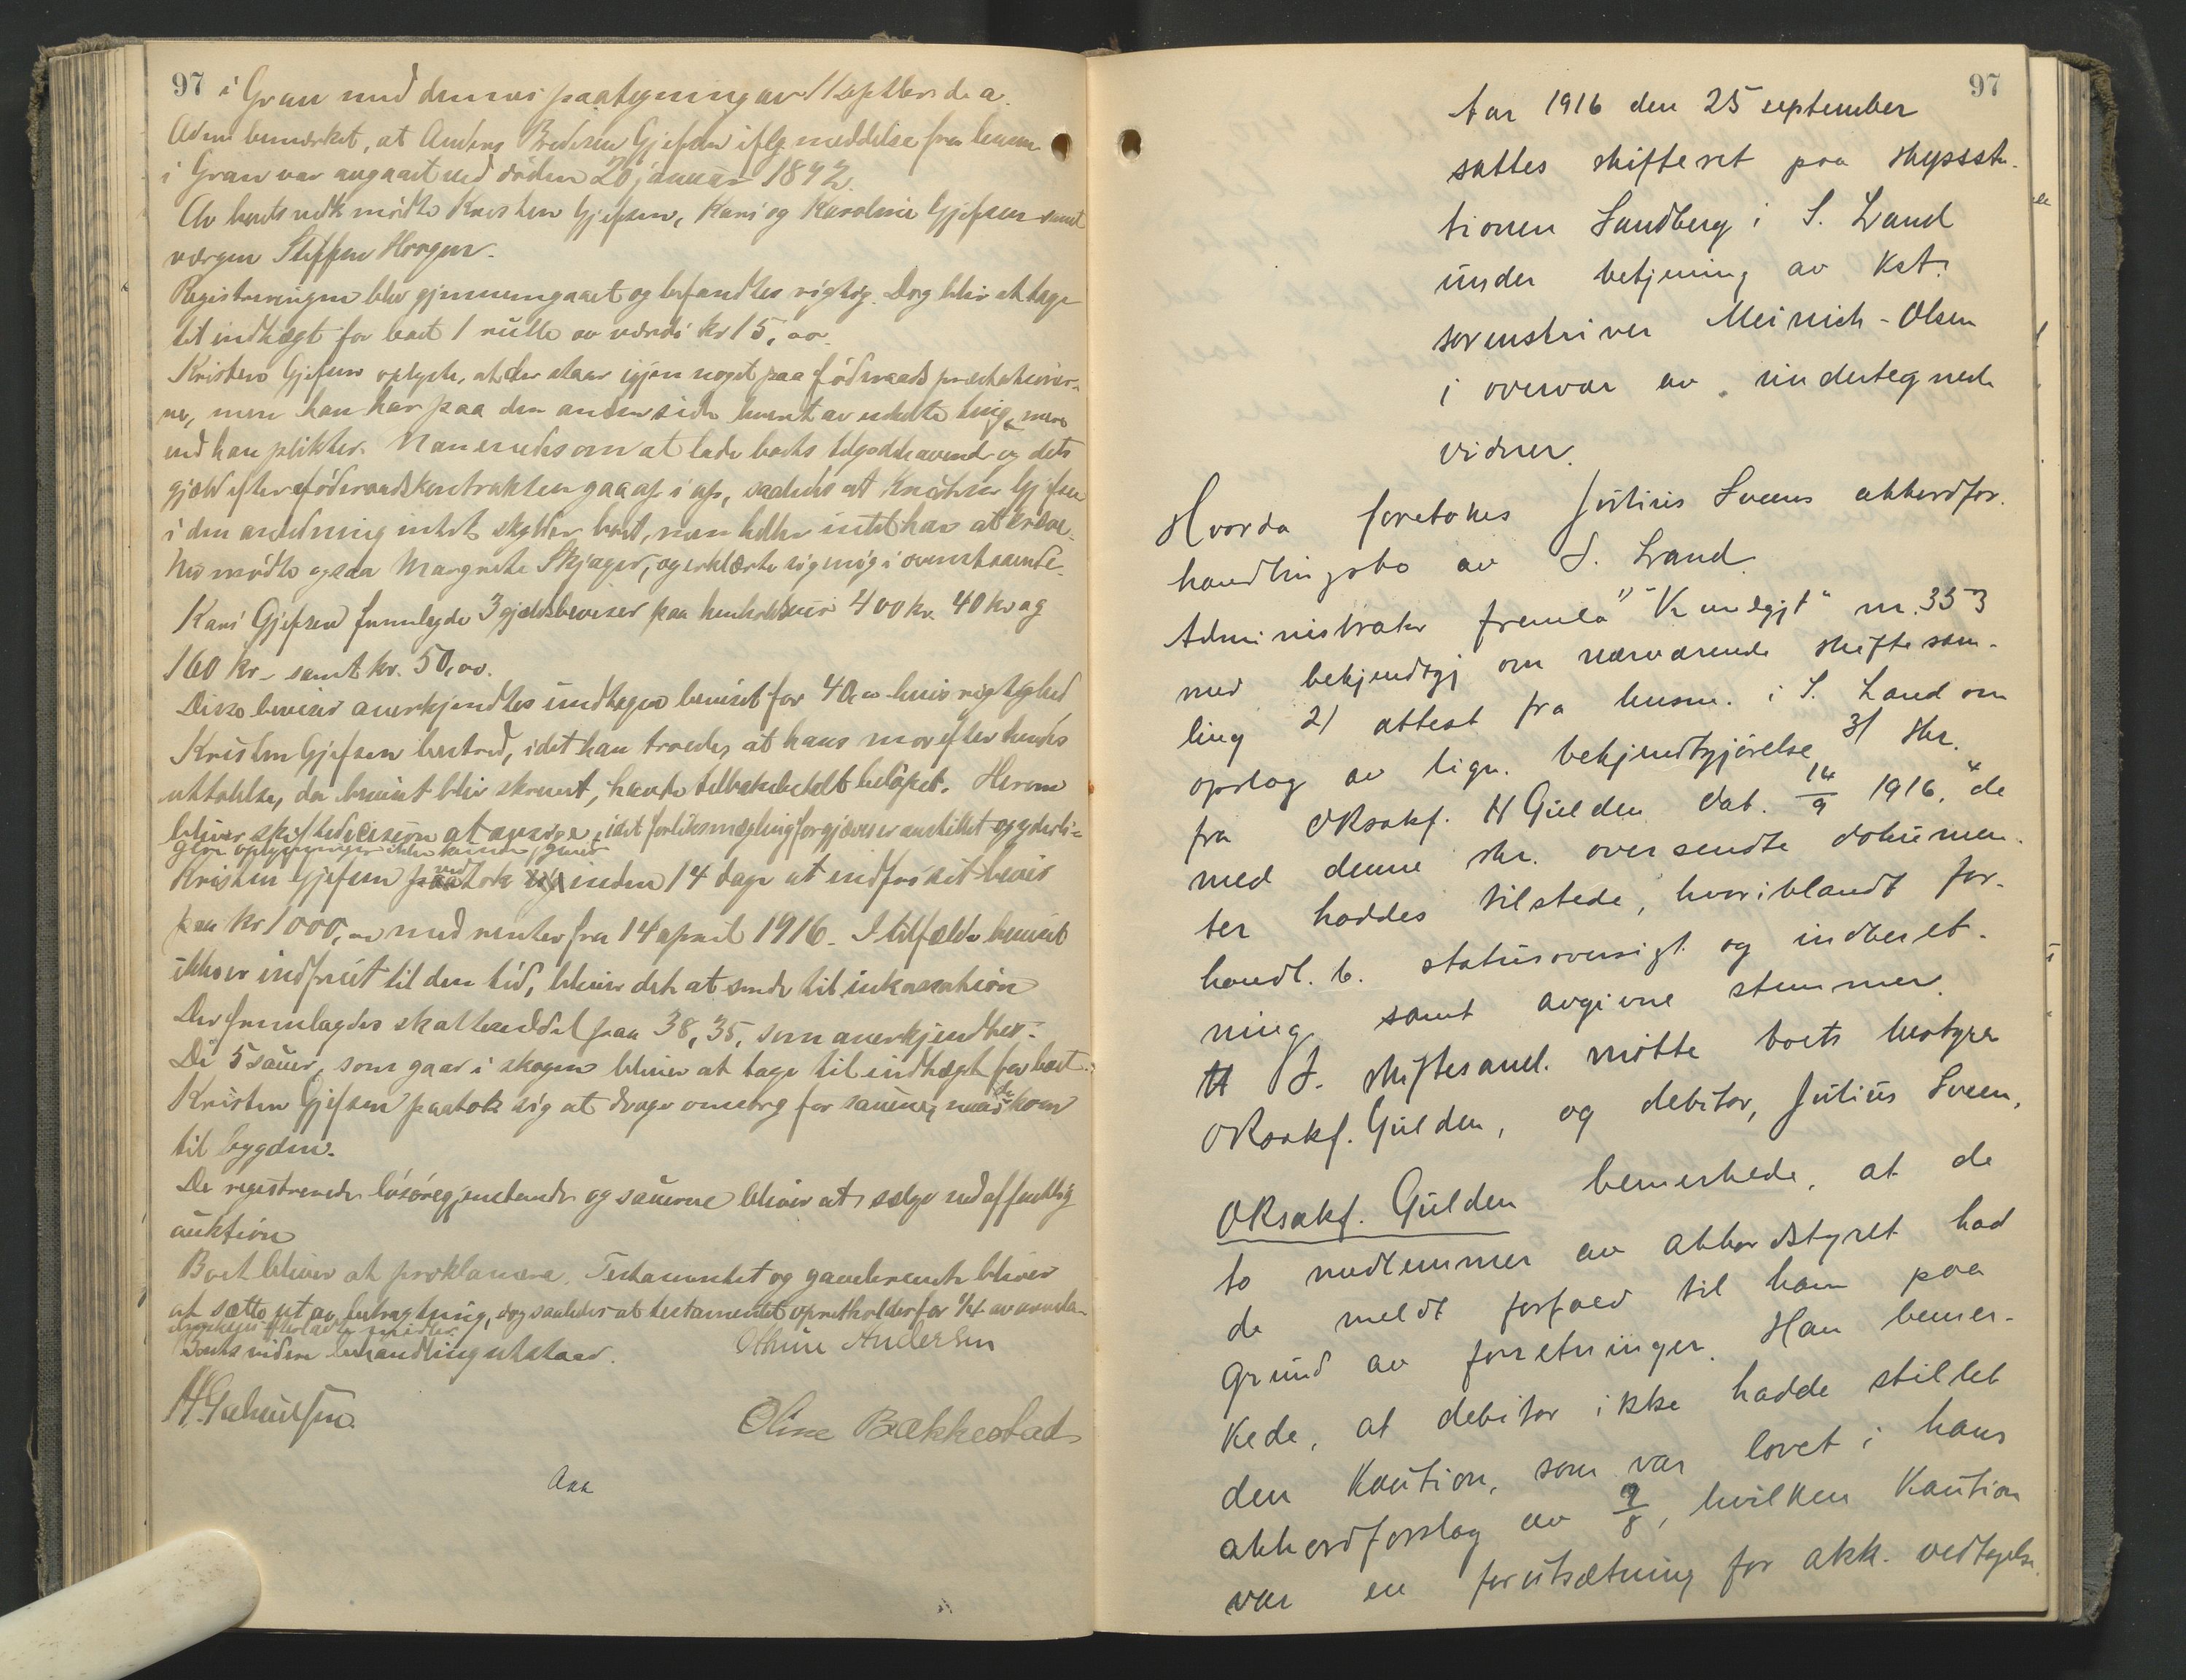 97 i Gran med dennes paategning av 11 septbr. d. a.
Adm. bemerket, at Anders Gjefsen iflg. meddelse fra lensm.
i Gran var avgaaet ved döden 20 januar 1892.
Av boets vedk. mödte Kristen Gjefsen, Kari og Karoline Gjefsen samt
vergen Steffen Horgen.
Registreringen blev gjennemgaaet og befandtes rigtig. Dog blir at tage
til indtægt for boet 1 rulle av værdi kr 15,00.
Kristen Gjefsen oplyste, at der staar igjen noget paa föderaads
ne, men han har paa den anden side ting mere
end han plikter. Man enedes om at lade boets tilgodehavende og dets
gjæld efter föderaadskontrakten gaa op i op, saaledes at Kristen Gjefsen
i den anledning intet skylder boet, men heller intet har at kræve.
Nu mödte ogsaa Margrethe Skjager, og erklærte sig enig i ovenstaaende.
Kari Gjefsen fremlegde 3 gjældsbeviser paa henholdsvis 400 kr. 40 kr og
160 kr. samt kr. 50,00.
Disse beviser anerkjendtes undtagen beviset for 40,00 hvis rigtighed
Kristen Gjefsen bestred, idet han troede, at hans mor efter hendes
uttalelse, da beviset blev skrevet, havde tilbakebetalt belöpet. Herom
bliver skiftedecision at avsige, idet forliksmægling forgjæves er anstillet og yderli-
gere oplysninger ikke kunde
Kristen Gjefsen vedtok inden 14 dage at indfri sit bevis
paa kr 1000,00 med renter fra 14 april 1916. I tilfælde beviset
ikke er indfriet til den tid, bliver det at sende til inkassation
Der fremlagdes skatteseddel paa 38,35, som anerkjendtes.
De 5 sauer, som gaar i skogen bliver at tage til indtægt for boet.
Kristen Gjefsen paatok sig at drage omsorg for sauene, naar de kom
til bygden.
De registrerede lösöregjenstande og sauerne bliver at sælge ved offentlig
auktion
Boet bliver at proklamere. Testamentet og gavebrevet bliver
at sætte ut av betragtning, dog saaledes at testamentet opretholdes for 1/4 av
Boets videre behandling utstaar.
Othine Andersen
Oline Bækkestad
Aaa
97
Aar 1916 den 25 september
sattes skifteret paa skyssta-
tionen Sandberg i S. Land
under betjening av kst.
sorenskriver Meinich-Olsen
i overvær av undertegnede
vidner.
Hvorda foretokes Julius Sveens akkordfor-
handlingsbo av S. Land.
Administrator fremla 1) "Kundgjt" nr. 353
med bekjendtgj om nærværende skiftesam-
ling 2) attest fra lensm. i S. Land om
opslag av lign. bekjendtgjörelse 3) skr.
fra ORsakf. H Gulden dat. 14/9 1916, de
med denne skr. oversendte dokumen-
ter haddes tilstede, hvoriblandt for-
handl. b. statusoversigt og indberet-
ning samt avgivne stemmer.
I skiftesaml. mötte boets bestyrer
ORsakf. Gulden, og debitor, Julius Sveen,
ORsakf. Gulden bemerkede, at de
to medlemmer av akkordstyret had
de meldt forfald til ham paa
grund av forretninger. Han bemer-
kede, at debitor ikke hadde stillet
den kaution, som var lovet i hans
akkordforslag av 9/8, hvilken kaution
var en forutsætning for akk. vedtagelse.